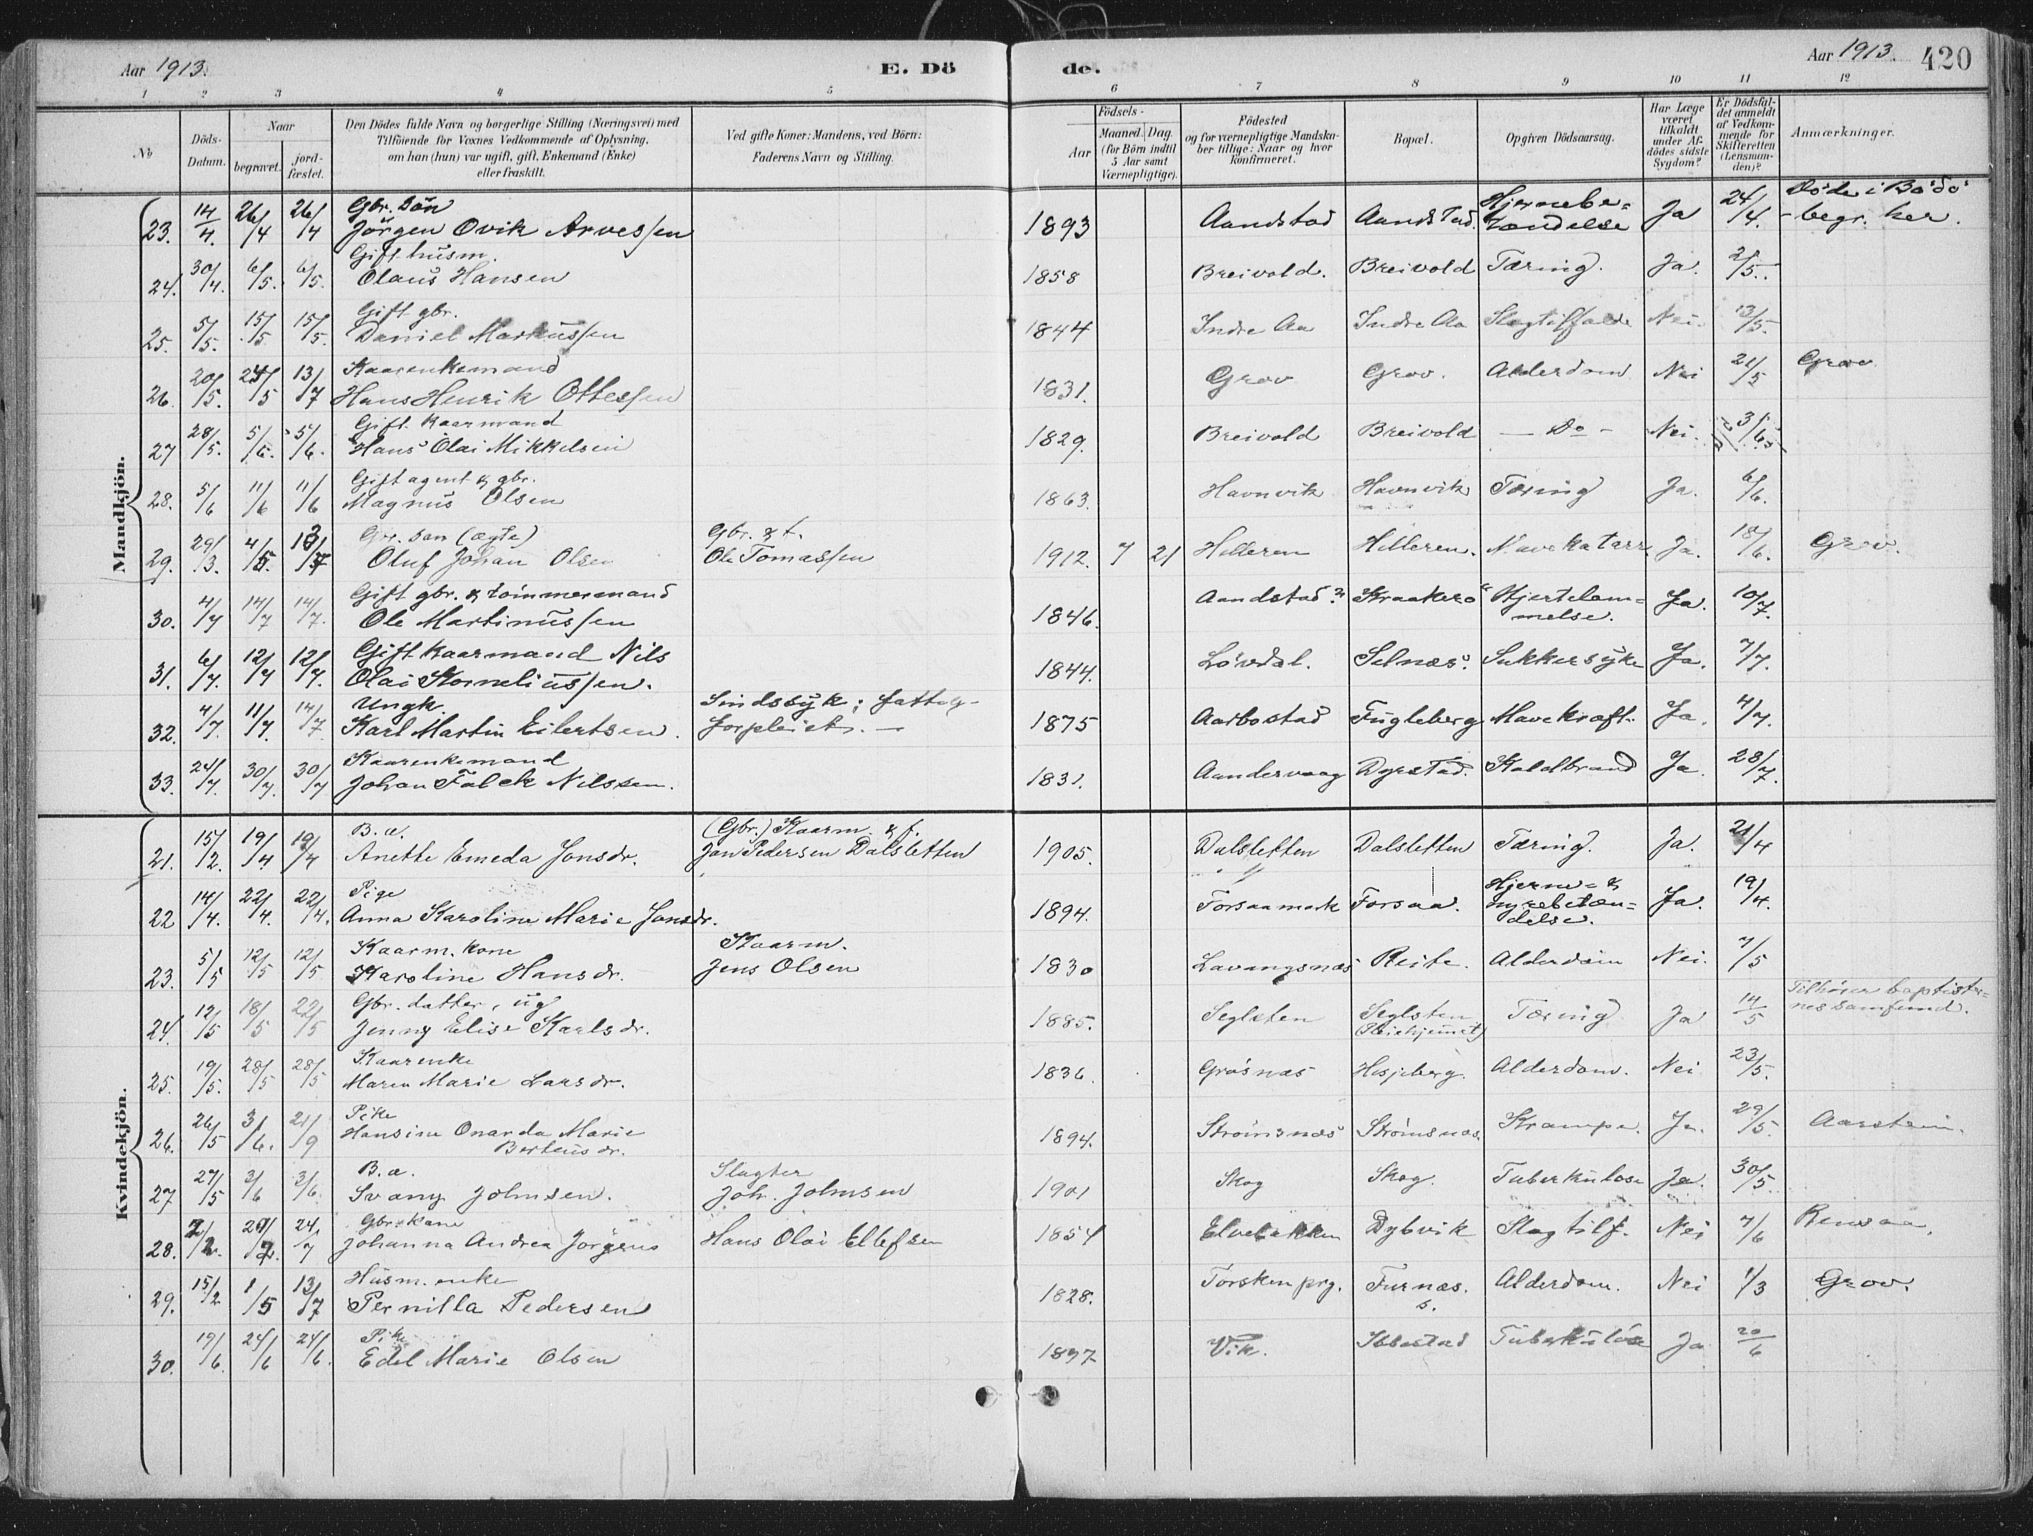 Aar 1913.
E. Dö
de.
Aar 1913.
420
1 2 3 4 5 6 7 8 9 10 11 12
No
Döds-Datum.
Naar
begravet.
jord-fæstet.
Den Dödes fulde Navn og borgerlige Stilling (Næringsvei) med
Tilföiende for Voxnes Vedkommende af Oplysning,
om han (hun) var ugift, gift, Enkemand (Enke)
eller fraskilt.
Ved gifte Koner: Mandens, ved Börn:
Faderens Navn og Stilling.
Födsels-
Aar
Maaned. Dag.
(for Börn indtil
5 Aar samt
Værnepligtige).
Födested
og for værnepligtige Mandska-
ber tillige: Naar og hvor
konfirmeret.
Bopæl.
Opgiven Dödsaarsag.
Har Læge
været
tilkaldt
under Af-
dödes sidste
Sygdom?
Er Dödsfal-
det anmeldt
af Vedkom-
mende for
Skifteretten
(Lensman-
den)?
Anmærkninger.
Mandkjön.
23. 14/4. 26/4 26/4 Gbr. sön Jörgen Ovik Arvessen 1893 Aandstad Aandstad. Hjernebe=tændelse Ja 24/4. Døde i Bodö - begr. her.
24. 30/4. 6/5. 6/5. Gift husm. Olaus Hansen 1858 Breivold. Breivold Tæring. Ja. 2/5.
25. 5/5. 15/5 15/5. Gift gbr. Daniel Markussen 1844 Indre Aa Indre Aa Slagtilfælde Nei. 13/5.
26. 20/5. 25/5 13/7 Kaarenkemand Hans Henrik Ottessen 1831. Grov Grov. Alderdom Nei 21/5 Grov
27 28/5. 5/6. 5/6. Gift Kaarmand Hans Olai Mikkelsen 1829. Breivold Breivold — Do - Nei. 3/6
28. 5/6 11/6 11/6 Gift agent & gbr. Magnus Olsen 1863. Havnvik Havnvik Tæring Ja. 6/6.
29. 29/3. 4/5. 13/7 Gbr. søn (ægte) Oluf Johan Olsen Gbr. & f. Ole Tomassen 1912. 7 21 Helleren Helleren. Mavekatarr Ja. 18/6. Grov.
30. 4/7 14/7 14/7. Gift gbr. & tömmermand Ole Martinussen 1846. Aandstad? Kraakerö Hjertelam=melse. Ja. 10/7.
31. 6/7. 12/7 12/7. Gift Kaarmand Nils Olai Korneliussen. 1844. Lövdal. Selnæs. Sukkersyke Ja. 7/7.
32. 4/7. 11/7. 14/7 Ungk. Karl Martin Eilertsen. Sindssyk; fattig-forpleiet. — 1875 Aarbostad Fugleberg Mavekræft. Ja. 4/7.
33. 24/7. 30/7. 30/7 Kaarenkemand Johan Falck Nilssen. 1831. Aandervaag Dyrstad. Koldbrand Ja. 28/7.
Kvindekjön.
21. 15/2. 19/4. 19/4 B. æ. Anette Emeda Jonsdr. (Gbr.) Kaarm. & f. Jon Pedersen Dalsletten 1905. Dalsletten Dalsletten Tæring. Ja. 21/4
22 14/4. 22/4. 22/4. Pige Anna Karoline Marie Jonsdr. 1894. Forsaamark Forsaa. Hjerne= & nyrebetæn=delse. Ja. 19/4.
23. 5/5 12/5 12/5 Kaarm. kone Karoline Hansdr. Kaarm. Jens Olsen 1830 Lavangsnæs Reite. Alderdom Nei. 7/5
24. 12/5 18/5 22/5 Gbr. datter, ug Jenny Elise Karlsdr. 1885. Seglsten Seglsten (Pleiehjemmet) Tæring Ja 14/5 Tilhører baptister=nes samfund.
25. 19/5. 28/5 28/5 Kaarenke Maren Marie Larsdr. 1836. Grøsnæs Hesjeberg. Alderdom. Nei 23/5.
26. 26/5 3/6. 21/9 Pike Hansine Onarda Marie Berteusdr. 1894. Strömsnæs Strömsnæs. Krampe. Ja. 29/5. Aarstein.
27 27/5 3/6 3/6. B. æ. Svany Johnsen. Slagter Joh. Johnsen 1901 Skog Skog. Tuberkulose Ja. 30/5.
28. 24/7 Gbr. kone Johanna Andrea Jörgens Hans Olai Ellefsen 1854 Elvebakken Dybvik Slagtilf. Nei 7/6 Rensaa.
29. 15/2 1/5 13/7 Husm. enke Pernilla Pedersen 1828. Torsken prg. Furnæs. Alderdom. Nei 1/3 Grov.
30. 19/6. 24/6 24/6. Pike Edel Marie Olsen 1897 Vik. Ibbestad Tuberkulose Ja 20/6